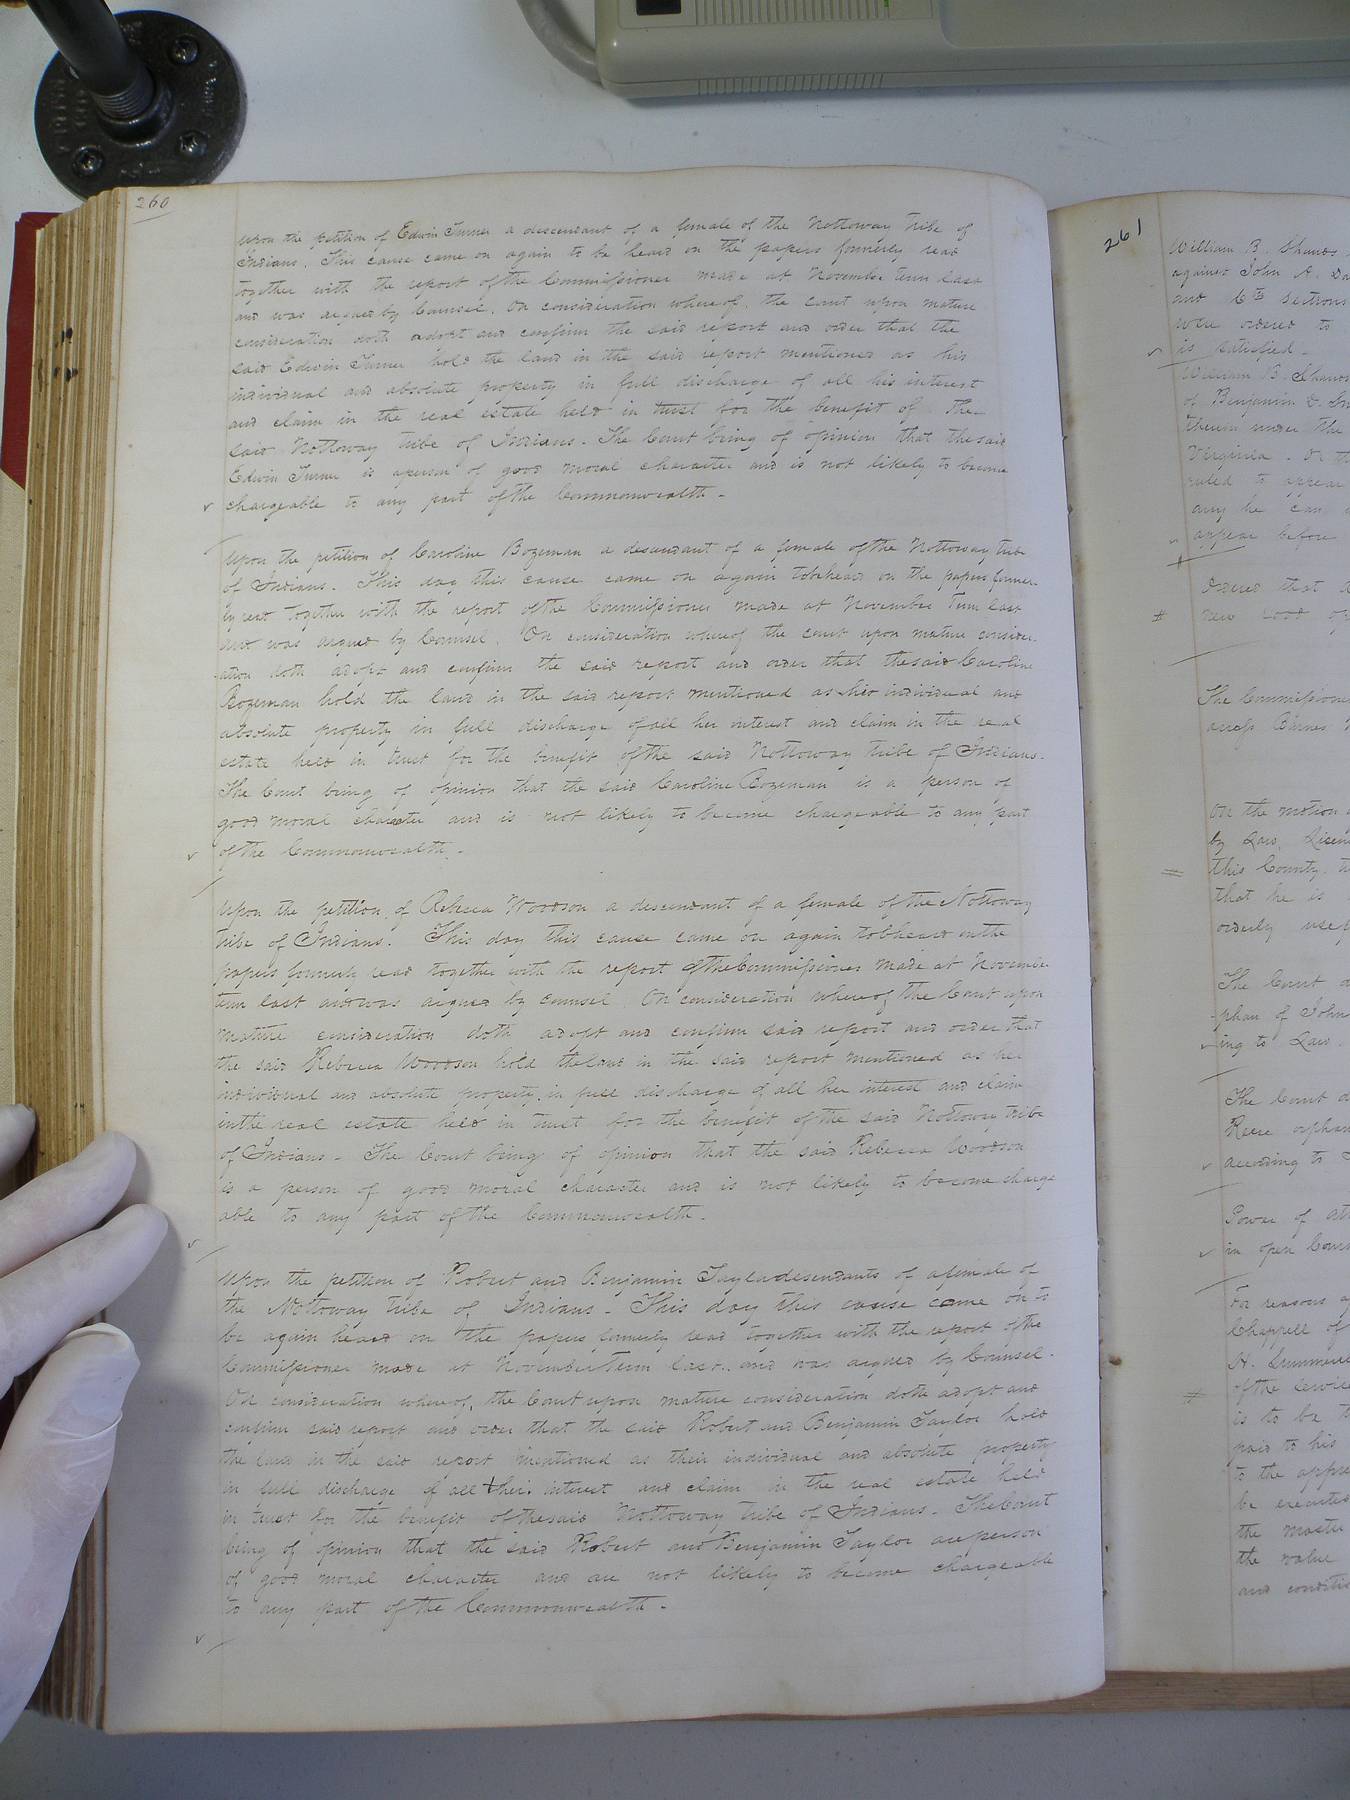 260
Upon the petition of Edwin Turner a descendant of a female of the Nottoway tribe of
Indians. This cause came on again to be heard on the papers formerly read
together with the report of the Commissioner made at November term last
and was argued by Counsel. On consideration whereof, the court upon mature
consideration doth adopt and confirm the said report and order that the
said Edwin Turner hold the land in the said report mentioned as his
individual and absolute property in full discharge of all his interest
and claim in the real estate held in trust for the benefit of the
said Nottoway tribe of Indians. The Court being of opinion that the said
Edwin Turner is a person of good moral character and is not likely to become
chargeable to any part of the Commonwealth -
Upon the petition of Caroline Bozeman a descendant of a female of the Nottoway tribe
of Indians. This day this cause came on again to be heard on the papers former-
ly read together with the report of the Commissioner made at November Term last
and was argued by Counsel. On consideration whereof the court upon mature consider-
-ation doth adopt and confirm the said report and order that the said Caroline
Bozeman hold the land in the said report mentioned as her individual and
absolute property in full discharge of all her interest and claim in the real
estate held in trust for the benefit of the said Nottoway tribe of Indians.
The Court being of opinion that the said Caroline Bozeman is a person of
good moral character and is not likely to become chargeable to any part
of the Commonwealth. -
Upon the petition of Rebecca Woodson a descendant of a female of the Nottoway
tribe of Indians. This day this cause came on again to be heard on the
papers formerly read together with the report of the Commissioner made at November
term last and was argued by counsel. On consideration whereof the Court upon
mature consideration doth adopt and confirm said report and order that
the said Rebecca Woodson hold the land in the said report mentioned as her
individual and absolute property in full discharge of all her interest and claim
in the real estate held in trust for the benefit of the said Nottoway tribe
of Indians - The Court being of opinion that the said Rebecca Woodson
is a person of good moral character and is not likely to become charge
able to any part of the Commonwealth.
Upon the petition of Robert and Benjamin Taylor descendants of a female of
the Nottoway tribe of Indians - This day this cause came on to
be again heard on the papers formerly read together with the report of the
Commissioner made at November Term last. and was argued by Counsel.
On consideration whereof, the Court upon mature consideration doth adopt and
confirm said report and order that the said Robert and Benjamin Taylor hold
the land in the said report mentioned as their individual and absolute property
in full discharge of all their interest and claim in the real estate held
in trust for the benefit of the said Nottoway tribe of Indians - The Court
being of opinion that the said Robert and Benjamin Taylor are person
of good moral character and are not likely to become chargeable
to any part of the Commonwealth -
261
William B. Shands
against John A.
and 6th sections
were ordered to
is satisfied -
William B. Shands
of Benjamin D.
therein under the
Virginia. On
ruled to appear
any he can
appear before
Ordered that
new road
The Commissioner
across Barnes
On the motion
by Law, Licen
this County,
that he is
orderly
The Court
-phan of John
-ing to Law.
The Court
Reese orphan
according to
Power of
in open Cour
For reasons
Chappell of
H.
of the
is to be
paid to his
to the
be executed
the master
the value
and conditio